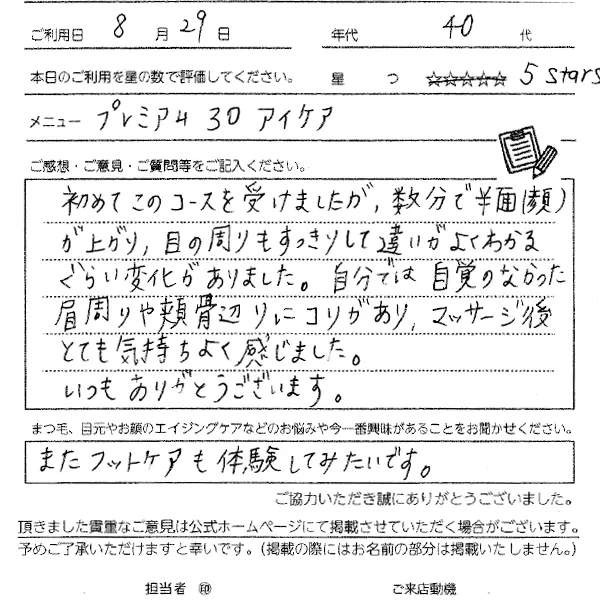 ご利用日 8 月 29 日 年代 40 代
本日のご利用を星の数で評価してください。 星 つ ☆☆☆☆☆ 5 stars
メニュー プレミアム 30 アイケア
ご感想・ご意見・ご質問等をご記入ください。
初めてこのコースを受けましたが、数分で半面(顔)
が上がり、目の周りもすっきりして違いがよくわかる
ぐらい変化がありました。自分では自覚のなかった
眉周りや頬骨辺りにコリがあり、マッサージ後
とても気持ちよく感じました。
いつもありがとうございます。
まつ毛、目元やお顔のエイジングケアなどのお悩みや今一番興味があることをお聞かせください。
またフットケアも体験してみたいです。
ご協力いただき誠にありがとうございました。
頂きました貴重なご意見は公式ホームページにて掲載させていただく場合がございます。
予めご了承いただけますと幸いです。(掲載の際にはお名前の部分は掲載いたしません。)
担当者 ㊞ ご来店動機